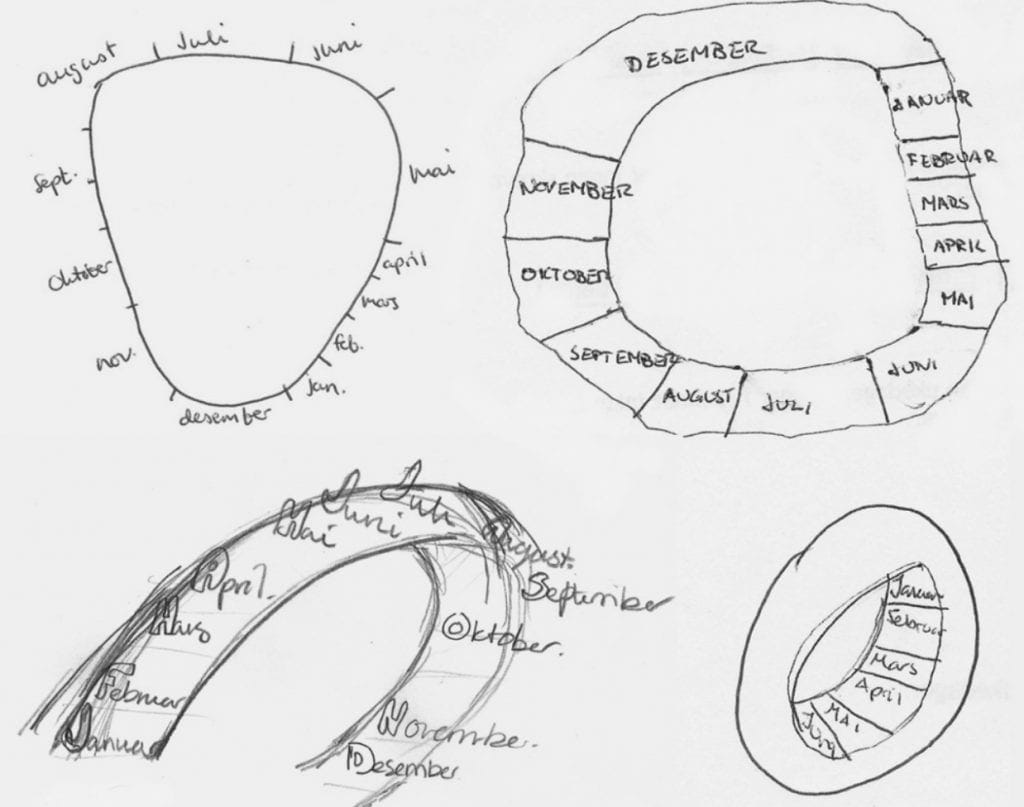 august
Juli
Juni
Mai
april
mars
feb.
Jan.
desember
nov.
Oktober
Sept.
DESEMBER
JANUAR
FEBRUAR
MARS
APRIL
MAI
JUNI
JULI
AUGUST
SEPTEMBER
OKTOBER
NOVEMBER
Januar
Februar
Mars
April.
Mai
Juni
Juli
August.
September
Oktober.
November.
Desember
Januar
Februar
Mars
April
MAI
Juni